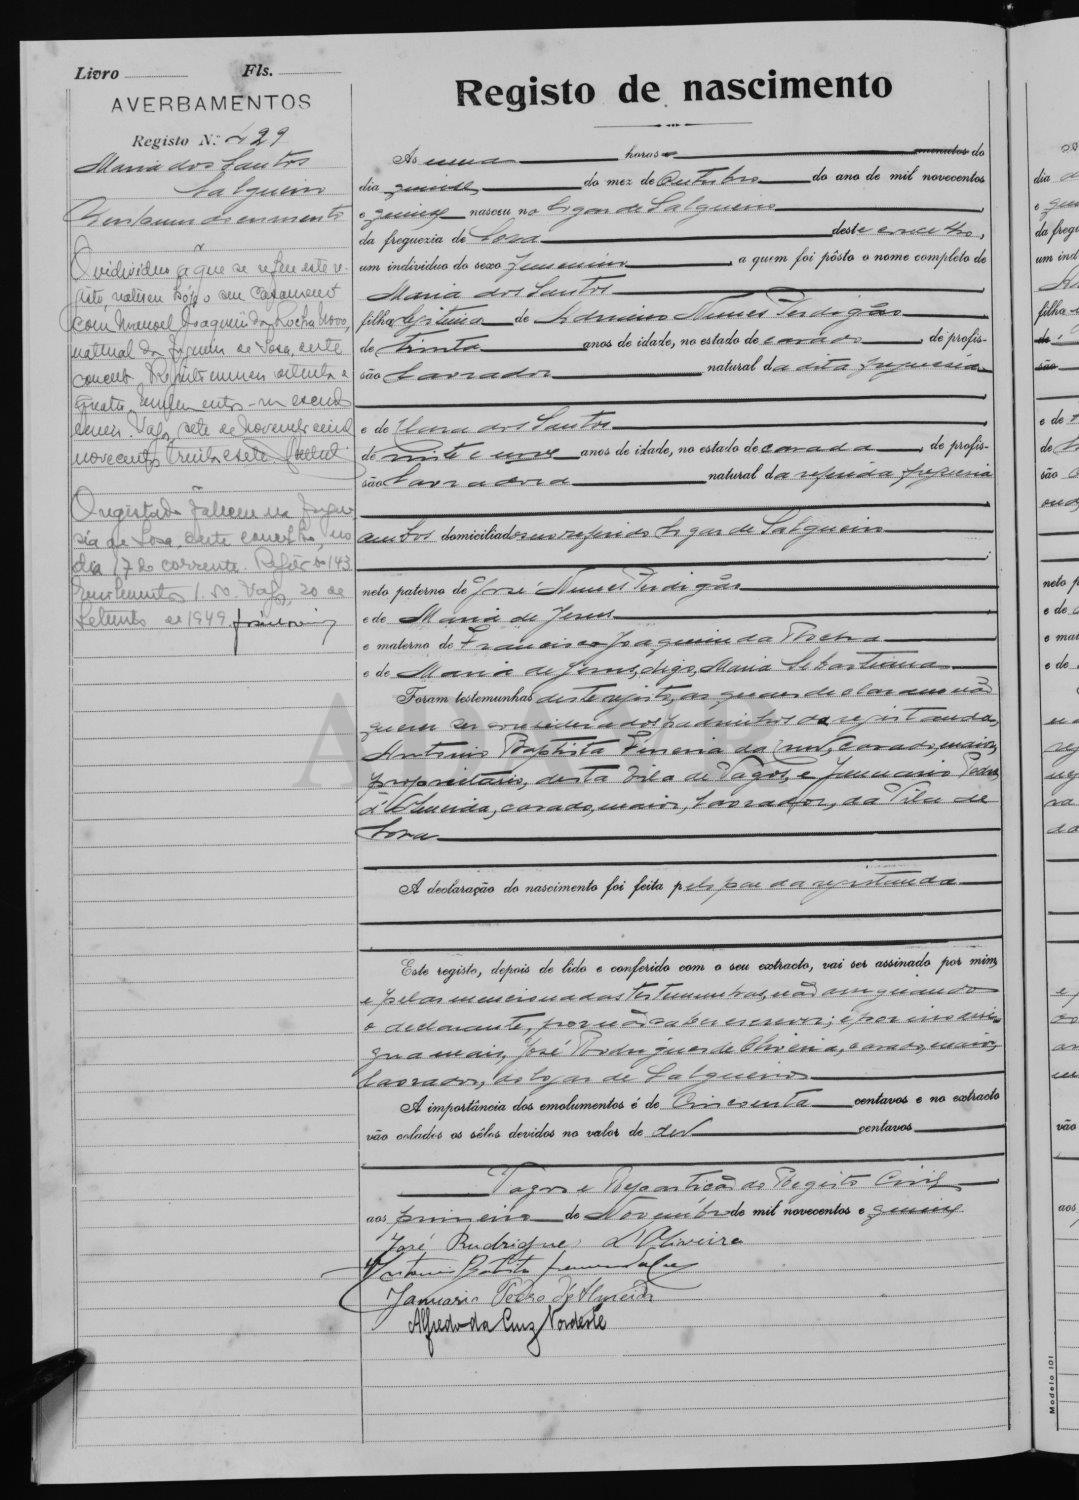 Livro Fls.
AVERBAMENTOS
Registo N.º 429
Maria dos Santos
Salgueiro
O individuo a que se refere este re-
gisto, realisou hoje o seu casamento
com Manuel Joaquim da Rocha Novo,
natural da freguesia de Sosa, deste
concelho. Registo numero oitenta e
quatro. Emolumentos - um escudo
Vagos, sete de Novembro de mil
novecentos trinta e sete.
O registado faleceu na fregue-
sia de Sosa, deste concelho, no
dia 17 do corrente. Registo 143
Emolumentos 1.50. Vagos, 20 de
Setembro de 1949
Registo de nascimento
Ás uma horas e minutos do
dia quinze do mez de Outubro do ano de mil novecentos
e quinze nasceu no logar de Salgueiro
da freguezia de Soza deste concelho,
um individuo do sexo femenino, a quem foi pôsto o nome completo de
Maria dos Santos
filha legitima de Adriano Nunes Perdigão
de trinta anos de idade, no estado de casado, de profis-
são lavrador natural da dita freguesia
e de Clara dos Santos
de vinte e nove anos de idade, no estado de casada, de profis-
são lavradora natural da referida freguesia
ambos domiciliados no referido logar de Salgueiro
neto paterno de José Nunes Perdigão
e de Maria de Jesus
e materno de Francisco Joaquim da Rocha
e de Maria de Jesus, digo, Maria Sebastiana
Foram testemunhas deste registo, as quaes declararam não
querer ser considerados padrinhos da registanda,
Antonio Baptista Ferreira da Cruz, casado, maior,
proprietario, desta vila de Vagos, e Januario Pedro
d'Almeida, casado, maior, lavrador, da vila de
Soza
A declaração do nascimento foi feita pelo pae da registanda
Este registo, depois de lido e conferido com o seu extracto, vai ser assinado por mim,
e pelas mencionadas testemunhas, não assinando
o declarante, por não saber escrever; e por isso assi-
gna mais, José Rodrigues de Oliveira, casado, maior,
lavrador, do logar de Salgueiro
A importância dos emolumentos é de cincoenta centavos e no extracto
vão colados os sêlos devidos no valor de dez centavos
Vagos e Repartição do Registo Civil
aos primeiro de Novembro de mil novecentos e quinze
José Rudrigues d'Oliveira
Antonio Batista Ferreira da Cruz
Januario Pedro d'Almeida
Alfredo da Cruz Nordeste
Modelo 101